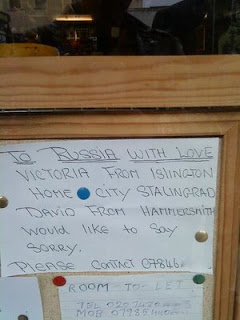 To RUSSIA WITH LOVE
VICTORIA FROM ISLINGTON
HOME CITY STALINGRAD
DAVID FROM HAMMERSMITH
would like to say
SORRY.
PLEASE CONTACT 07846
ROOM TO LET
TEL 020
MOB 07985